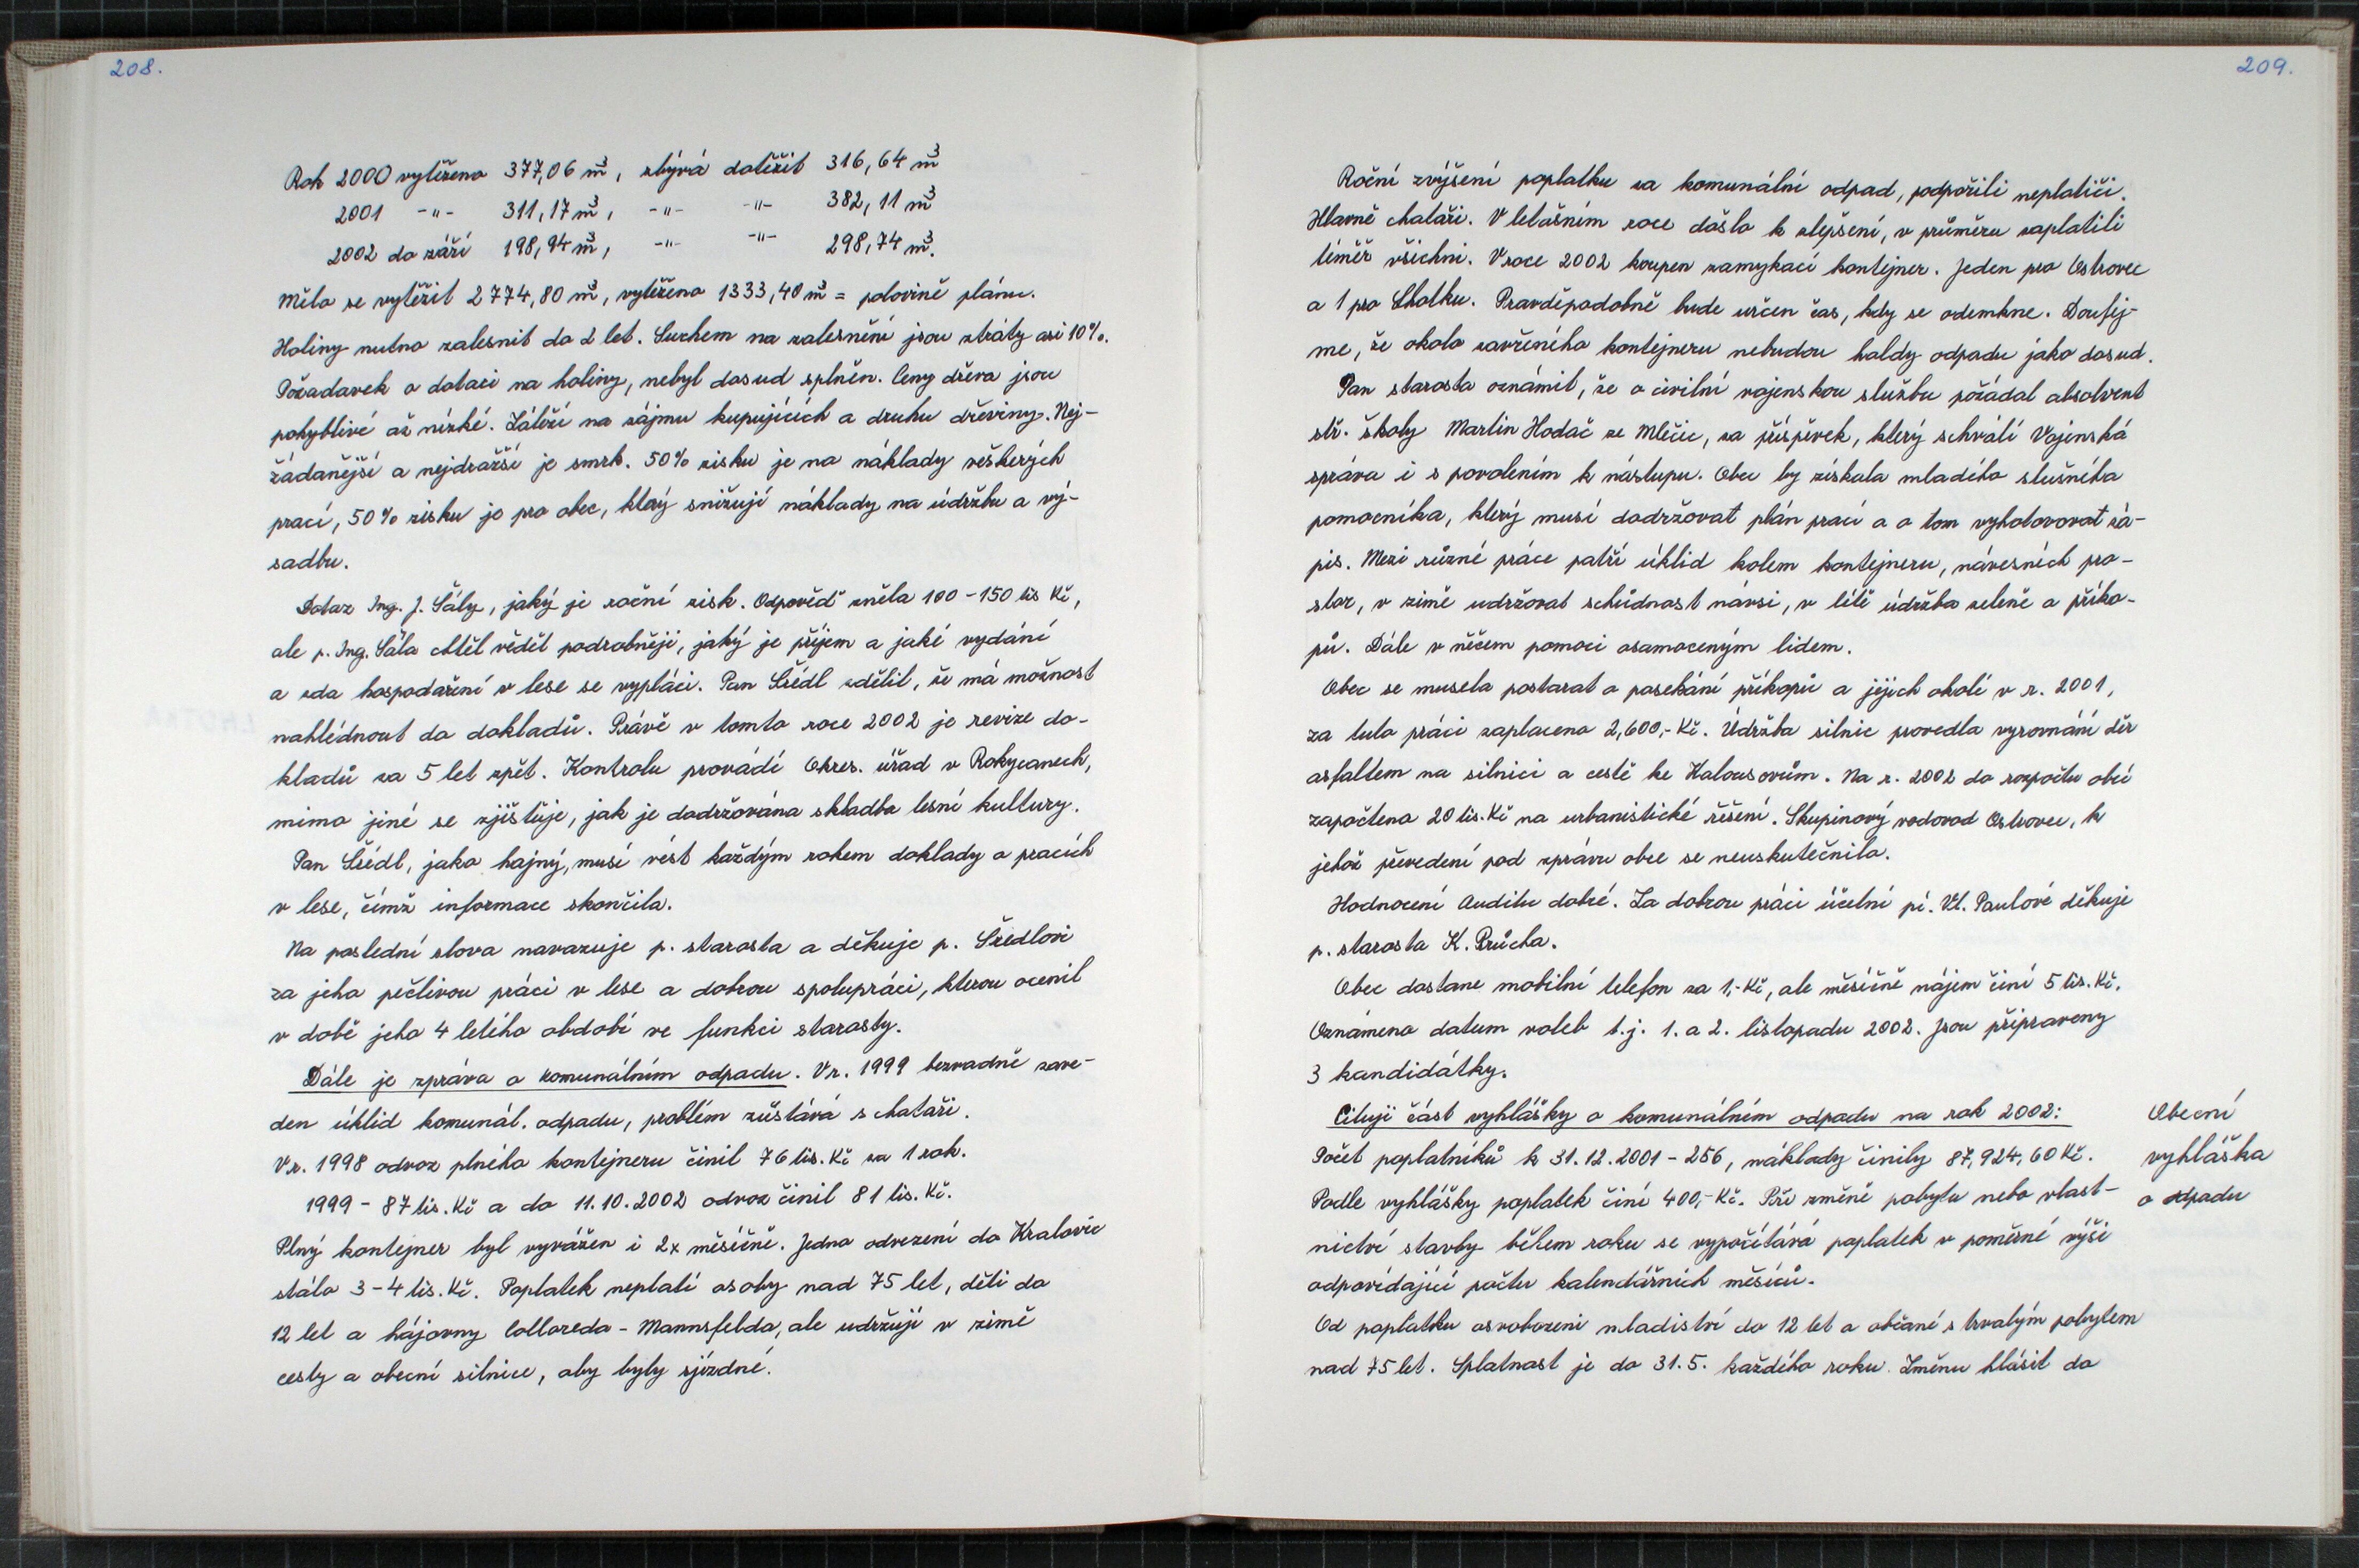 208.
Rok 2000 vytěženo 377,06 m³, zbývá dotěžit 316,64 m³
2001 -"- 311,17 m³, -"- -"- 382,11 m³
2002 do září 198,94 m³, -"- -"- 298,74 m³.
Mělo se vytěžit 2774,80 m³, vytěženo 1333,40 m³ = polovině plánu.
Holiny nutno zalesnit do 2 let. Suchem na zalesnění jsou ztráty asi 10%.
Požadavek o dotaci na holiny, nebyl dosud splněn. Ceny dřeva jsou
pohyblivé až nízké. Záleží na zájmu kupujících a druhu dřeviny. Nej-
žádanější a nejdražší je smrk. 50% zisku je na náklady veškerých
prací, 50% zisku je pro obec, který snižují náklady na údržbu a vý-
sadbu.
Dotaz Ing. J. Šály, jaký je roční zisk. Odpověď zněla 100-150 tis Kč,
ale p. Ing. Šála chtěl vědět podrobněji, jaký je příjem a jaké vydání
a zda hospodaření v lese se vyplácí. Pan Šrédl sdělil, že má možnost
nahlédnout do dokladů. Právě v tomto roce 2002 je revize do-
kladů za 5 let zpět. Kontrolu provádí Okres. úřad v Rokycanech,
mimo jiné se zjišťuje, jak je dodržována skladba lesní kultury.
Pan Šrédl, jako hajný, musí vést každým rokem doklady o pracích
v lese, čímž informace skončila.
Na poslední slova navazuje p. starosta a děkuje p. Šredlovi
za jeho pečlivou práci v lese a dobrou spolupráci, kterou ocenil
v době jeho 4 letého období ve funkci starosty.
Dále je zpráva o komunálním odpadu. V r. 1999 bezvadně zave-
den úklid komunál. odpadu, problém zůstává s chataři.
V r. 1998 odvoz plného kontejneru činil 76 tis. Kč za 1 rok.
1999 - 87 tis. Kč a do 11.10.2002 odvoz činil 81 tis. Kč.
Plný kontejner byl vyvážen i 2x měsíčně. Jedno odvezení do Kralovic
stálo 3-4 tis. Kč. Poplatek neplatí osoby nad 75 let, děti do
12 let a hájovny Colloreda - Mannsfelda, ale udržují v zimě
cesty a obecní silnice, aby byly sjízdné.
209.
Roční zvýšení poplatku za komunální odpad, podpořili neplatiči.
Hlavně chataři. V letošním roce došlo k zlepšení, v průměru zaplatili
téměř všichni. V roce 2002 koupen zamykací kontejner. Jeden pro Ostrovec
a 1 pro Lhotku. Pravděpodobně bude určen čas, kdy se odemkne. Doufej-
me, že okolo zavřeného kontejneru nebudou haldy odpadu jako dosud.
Pan starosta oznámil, že o civilní vojenskou službu požádal absolvent
stř. školy Martin Hodač ze Mlečic, za příspěvek, který schválí Vojenská
správa i s povolením k nástupu. Obec by získala mladého slušného
pomocníka, který musí dodržovat plán prací a o tom vyhotovovat zá-
pis. Mezi různé práce patří úklid kolem kontejneru, návesních pro-
stor, v zimě udržovat schůdnost návsi, v létě údržba zeleně a příko-
pů. Dále v něčem pomoci osamoceným lidem.
Obec se musela postarat o posekání příkopů a jejich okolí v r. 2001,
za tuto práci zaplaceno 2,600,- Kč. Údržba silnic provedla vyrovnání děr
asfaltem na silnici a cestě ke Kalousovům. Na r. 2002 do rozpočtu obcí
započteno 20 tis. Kč na urbanistické řešení. Skupinový vodovod Ostrovec, k
jehož převedení pod zprávu obce se neuskutečnilo.
Hodnocení Auditu dobré. Za dobrou práci účetní pí. Vl. Paulové děkuje
p. starosta K. Průcha.
Obec dostane mobilní telefon za 1,- Kč, ale měsíčně nájem činí 5 tis. Kč.
Oznámeno datum voleb t.j. 1. a 2. listopadu 2002. Jsou připraveny
3 kandidátky.
Cituji část vyhlášky o komunálním odpadu na rok 2002:
Počet poplatníků k 31.12.2001 - 256, náklady činily 87,924,60 Kč.
Podle vyhlášky poplatek činí 400,- Kč. Při změně pobytu nebo vlast-
nictví stavby během roku se vypočítává poplatek v poměrné výši
odpovídající počtu kalendářních měsíců.
Od poplatku osvobozeni mladiství do 12 let a občané s trvalým pobytem
nad 75 let. Splatnost je do 31.5. každého roku. Změnu hlásit do
Obecní
vyhláška
o odpadu